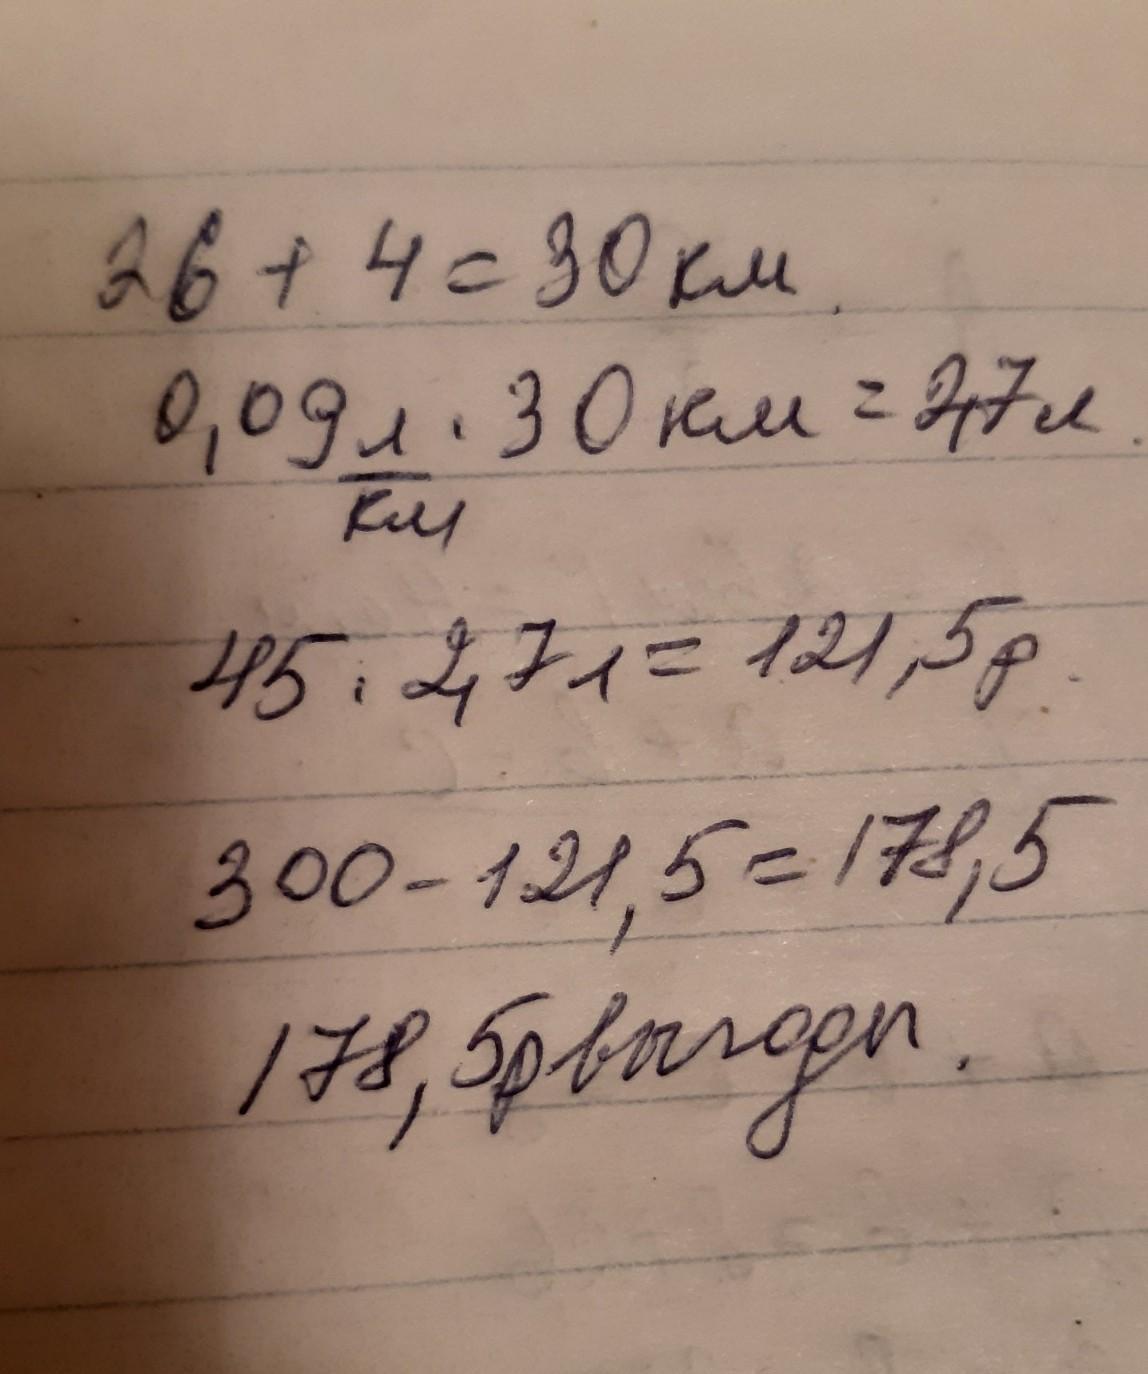 26 + 4 = 30 км.
0,09 л/км · 30 км = 2,7 л.
45 · 2,7 л = 121,5 р.
300 - 121,5 = 178,5
178,5 р выгоды.